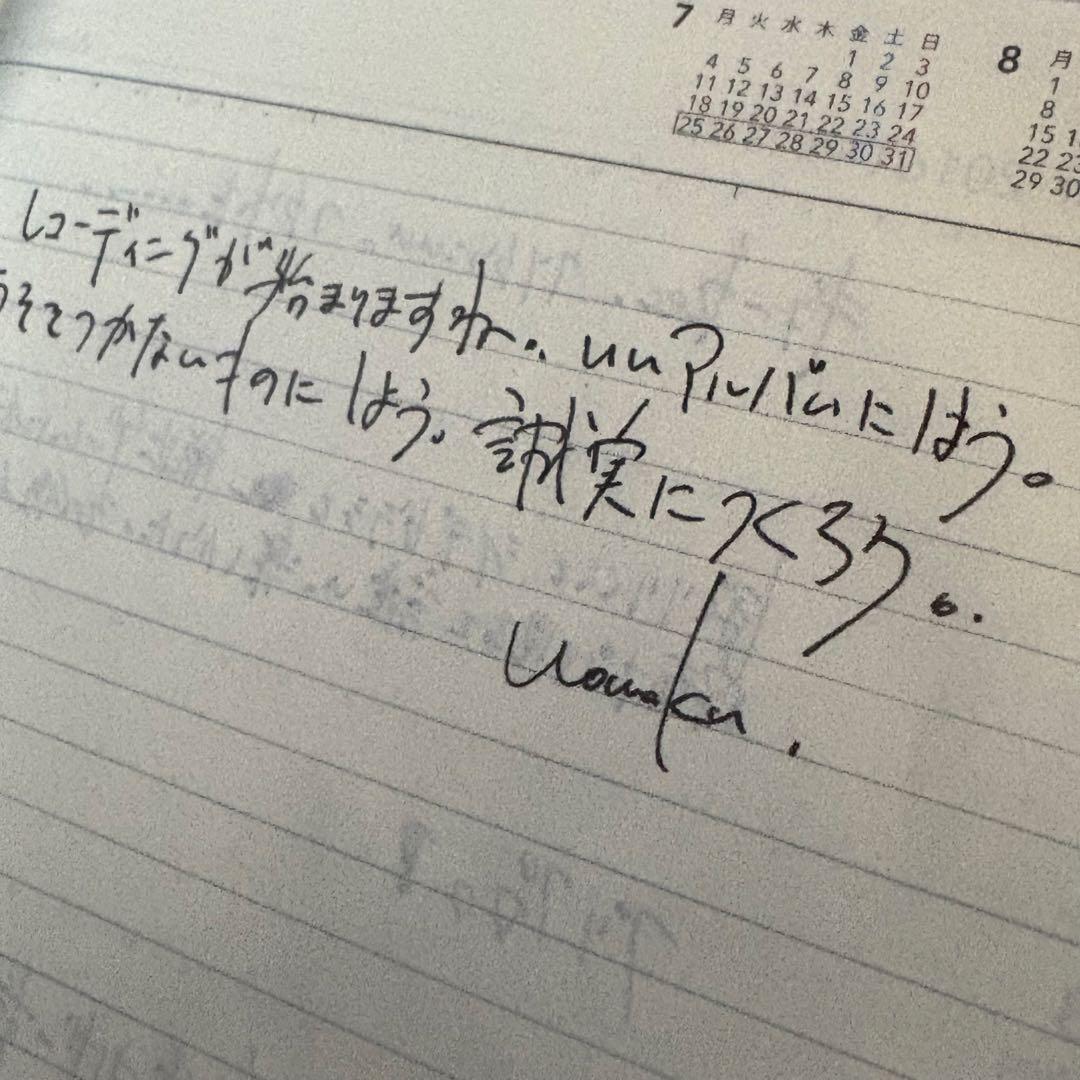 7 月 火 水 木 金 土 日
1 2 3
4 5 6 7 8 9 10
11 12 13 14 15 16 17
18 19 20 21 22 23 24
25 26 27 28 29 30 31
8 月
1
8
15
22 23
29 30
レコーディングが始まりますね。いいアルバムにしよう。
うそをつかないものにしよう。誠実につくろう。